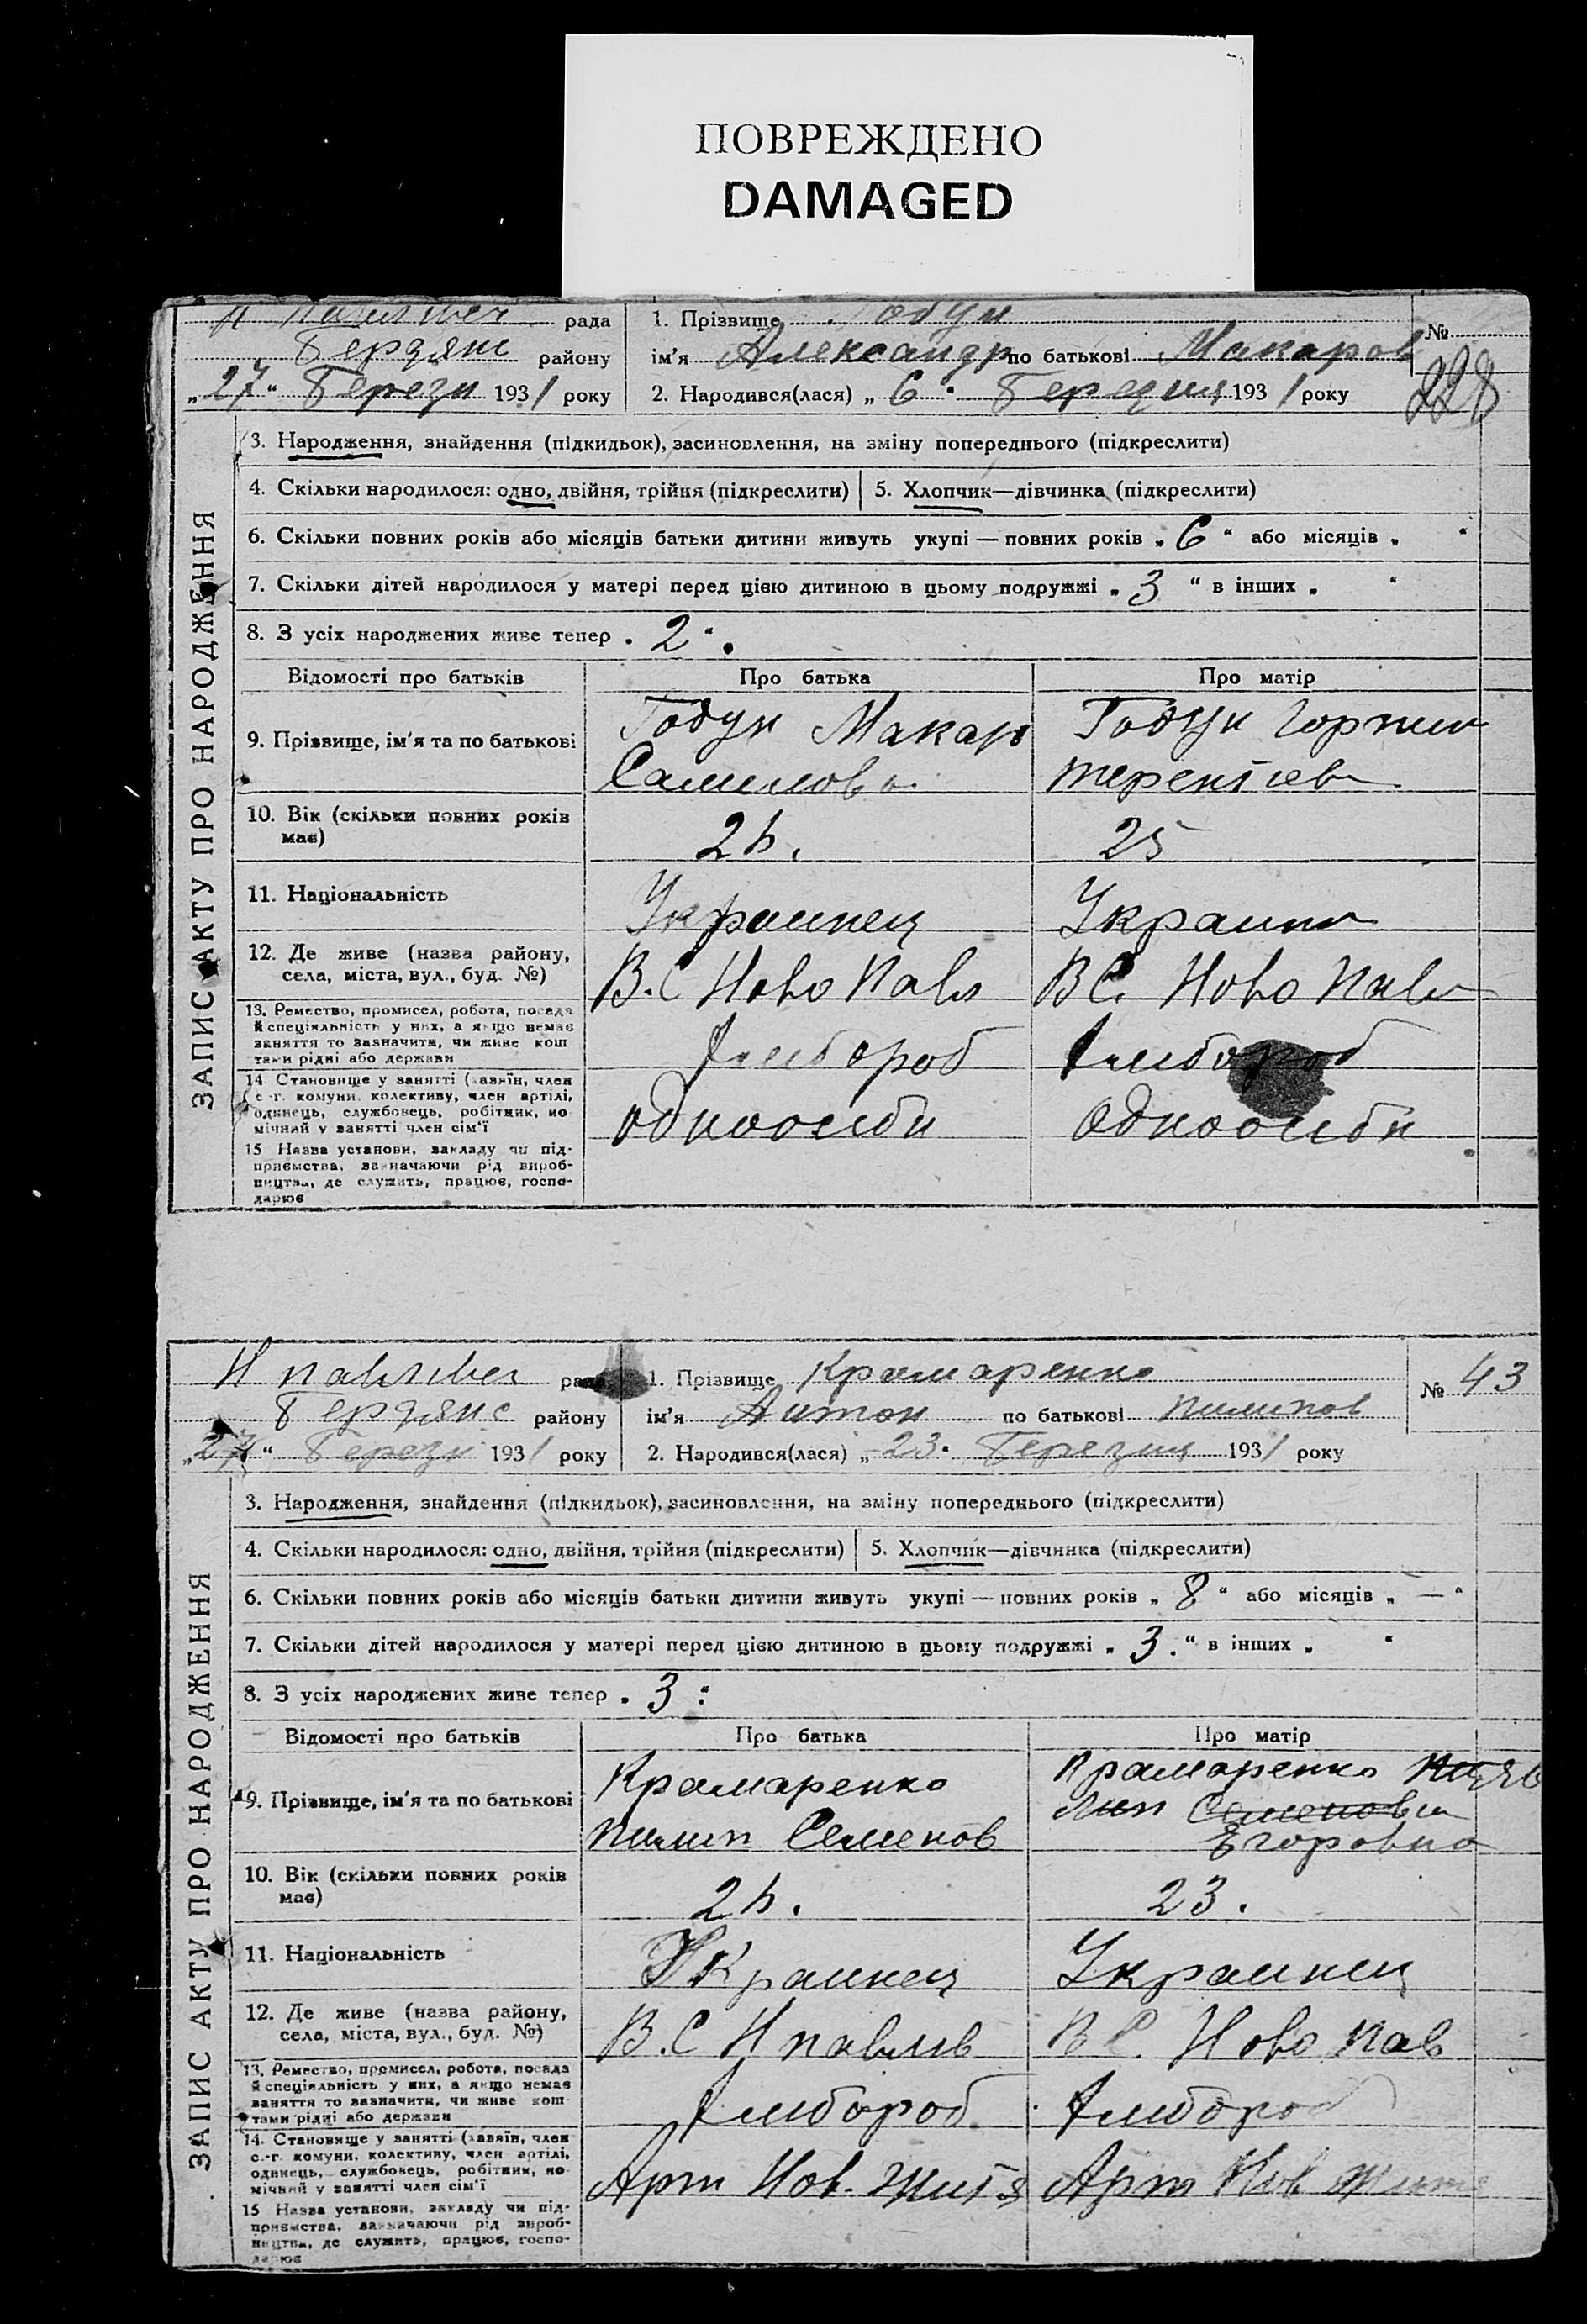 ПОВРЕЖДЕНО
DAMAGED
рада
Бердянс району
„27“ Березн 1931 року
1. Прізвище Годун
ім'я Александр по батькові Макаров
2. Народився(лася) „6“ 1931 року
№
228
ЗАПИС АКТУ ПРО НАРОДЖЕННЯ
3. Народження, знайдення (підкидьок), засиновлення, на зміну попереднього (підкреслити)
4. Скільки народилося: одно, двійня, трійня (підкреслити)
5. Хлопчик—дівчинка (підкреслити)
6. Скільки повних років або місяців батьки дитини живуть укупі — повних років „6“ або місяців „ “
7. Скільки дітей народилося у матері перед цією дитиною в цьому подружжі „3“ в інших „ “
8. З усіх народжених живе тепер „2“.
Відомості про батьків
Про батька
Про матір
9. Прізвище, ім'я та по батькові
Годун Макар
Годун
10. Вік (скільки повних років
має)
25
11. Національність
Украинец
12. Де живе (назва району,
села, міста, вул., буд. №)
В.С Ново Павл
В С. Ново Павл
13. Ремество, промисел, робота, посада
й спеціяльність у них, а якщо немає
заняття то зазначити, чи живе кош
тами рідні або держави
14. Становище у занятті (хазяїн, член
с.-г. комуни, колективу, член артілі,
одинець, службовець, робітник, по
мічний у занятті член сім'ї
одноосибн
одноосибн
15 Назва установи, закладу чи під-
приємства, зазначаючи рід вироб-
ництва, де служить, працює, госпо-
дарює
Н павливск рада
Бердянс району
„27“ Березн 1931 року
1. Прізвище Крамаренко
ім'я Антон по батькові Пилипов
2. Народився(лася) „23“ 1931 року
№ 43
ЗАПИС АКТУ ПРО НАРОДЖЕННЯ
3. Народження, знайдення (підкидьок), засиновлення, на зміну попереднього (підкреслити)
4. Скільки народилося: одно, двійня, трійня (підкреслити)
5. Хлопчик—дівчинка (підкреслити)
6. Скільки повних років або місяців батьки дитини живуть укупі — повних років „8“ або місяців „—“
7. Скільки дітей народилося у матері перед цією дитиною в цьому подружжі „3.“ в інших „ “
8. З усіх народжених живе тепер „3“
Відомості про батьків
Про батька
Про матір
9. Прізвище, ім'я та по батькові
Крамаренко
Пилип Семенов
Крамаренко
Семеновна
Егоровна
10. Вік (скільки повних років
має)
23.
11. Національність
Украинец
Украинец
12. Де живе (назва району,
села, міста, вул., буд. №)
В.С Н павлив
В С. Ново Пав
13. Ремество, промисел, робота, посада
й спеціяльність у них, а якщо немає
заняття то зазначити, чи живе кош
тами рідні або держави
14. Становище у занятті (хазяїн, член
с.-г. комуни, колективу, член артілі,
одинець, службовець, робітник, по
мічний у занятті член сім'ї
Арт Нов. Життя
Арт Нов
15 Назва установи, закладу чи під-
приємства, зазначаючи рід вироб-
ництва, де служить, працює, госпо-
дарює